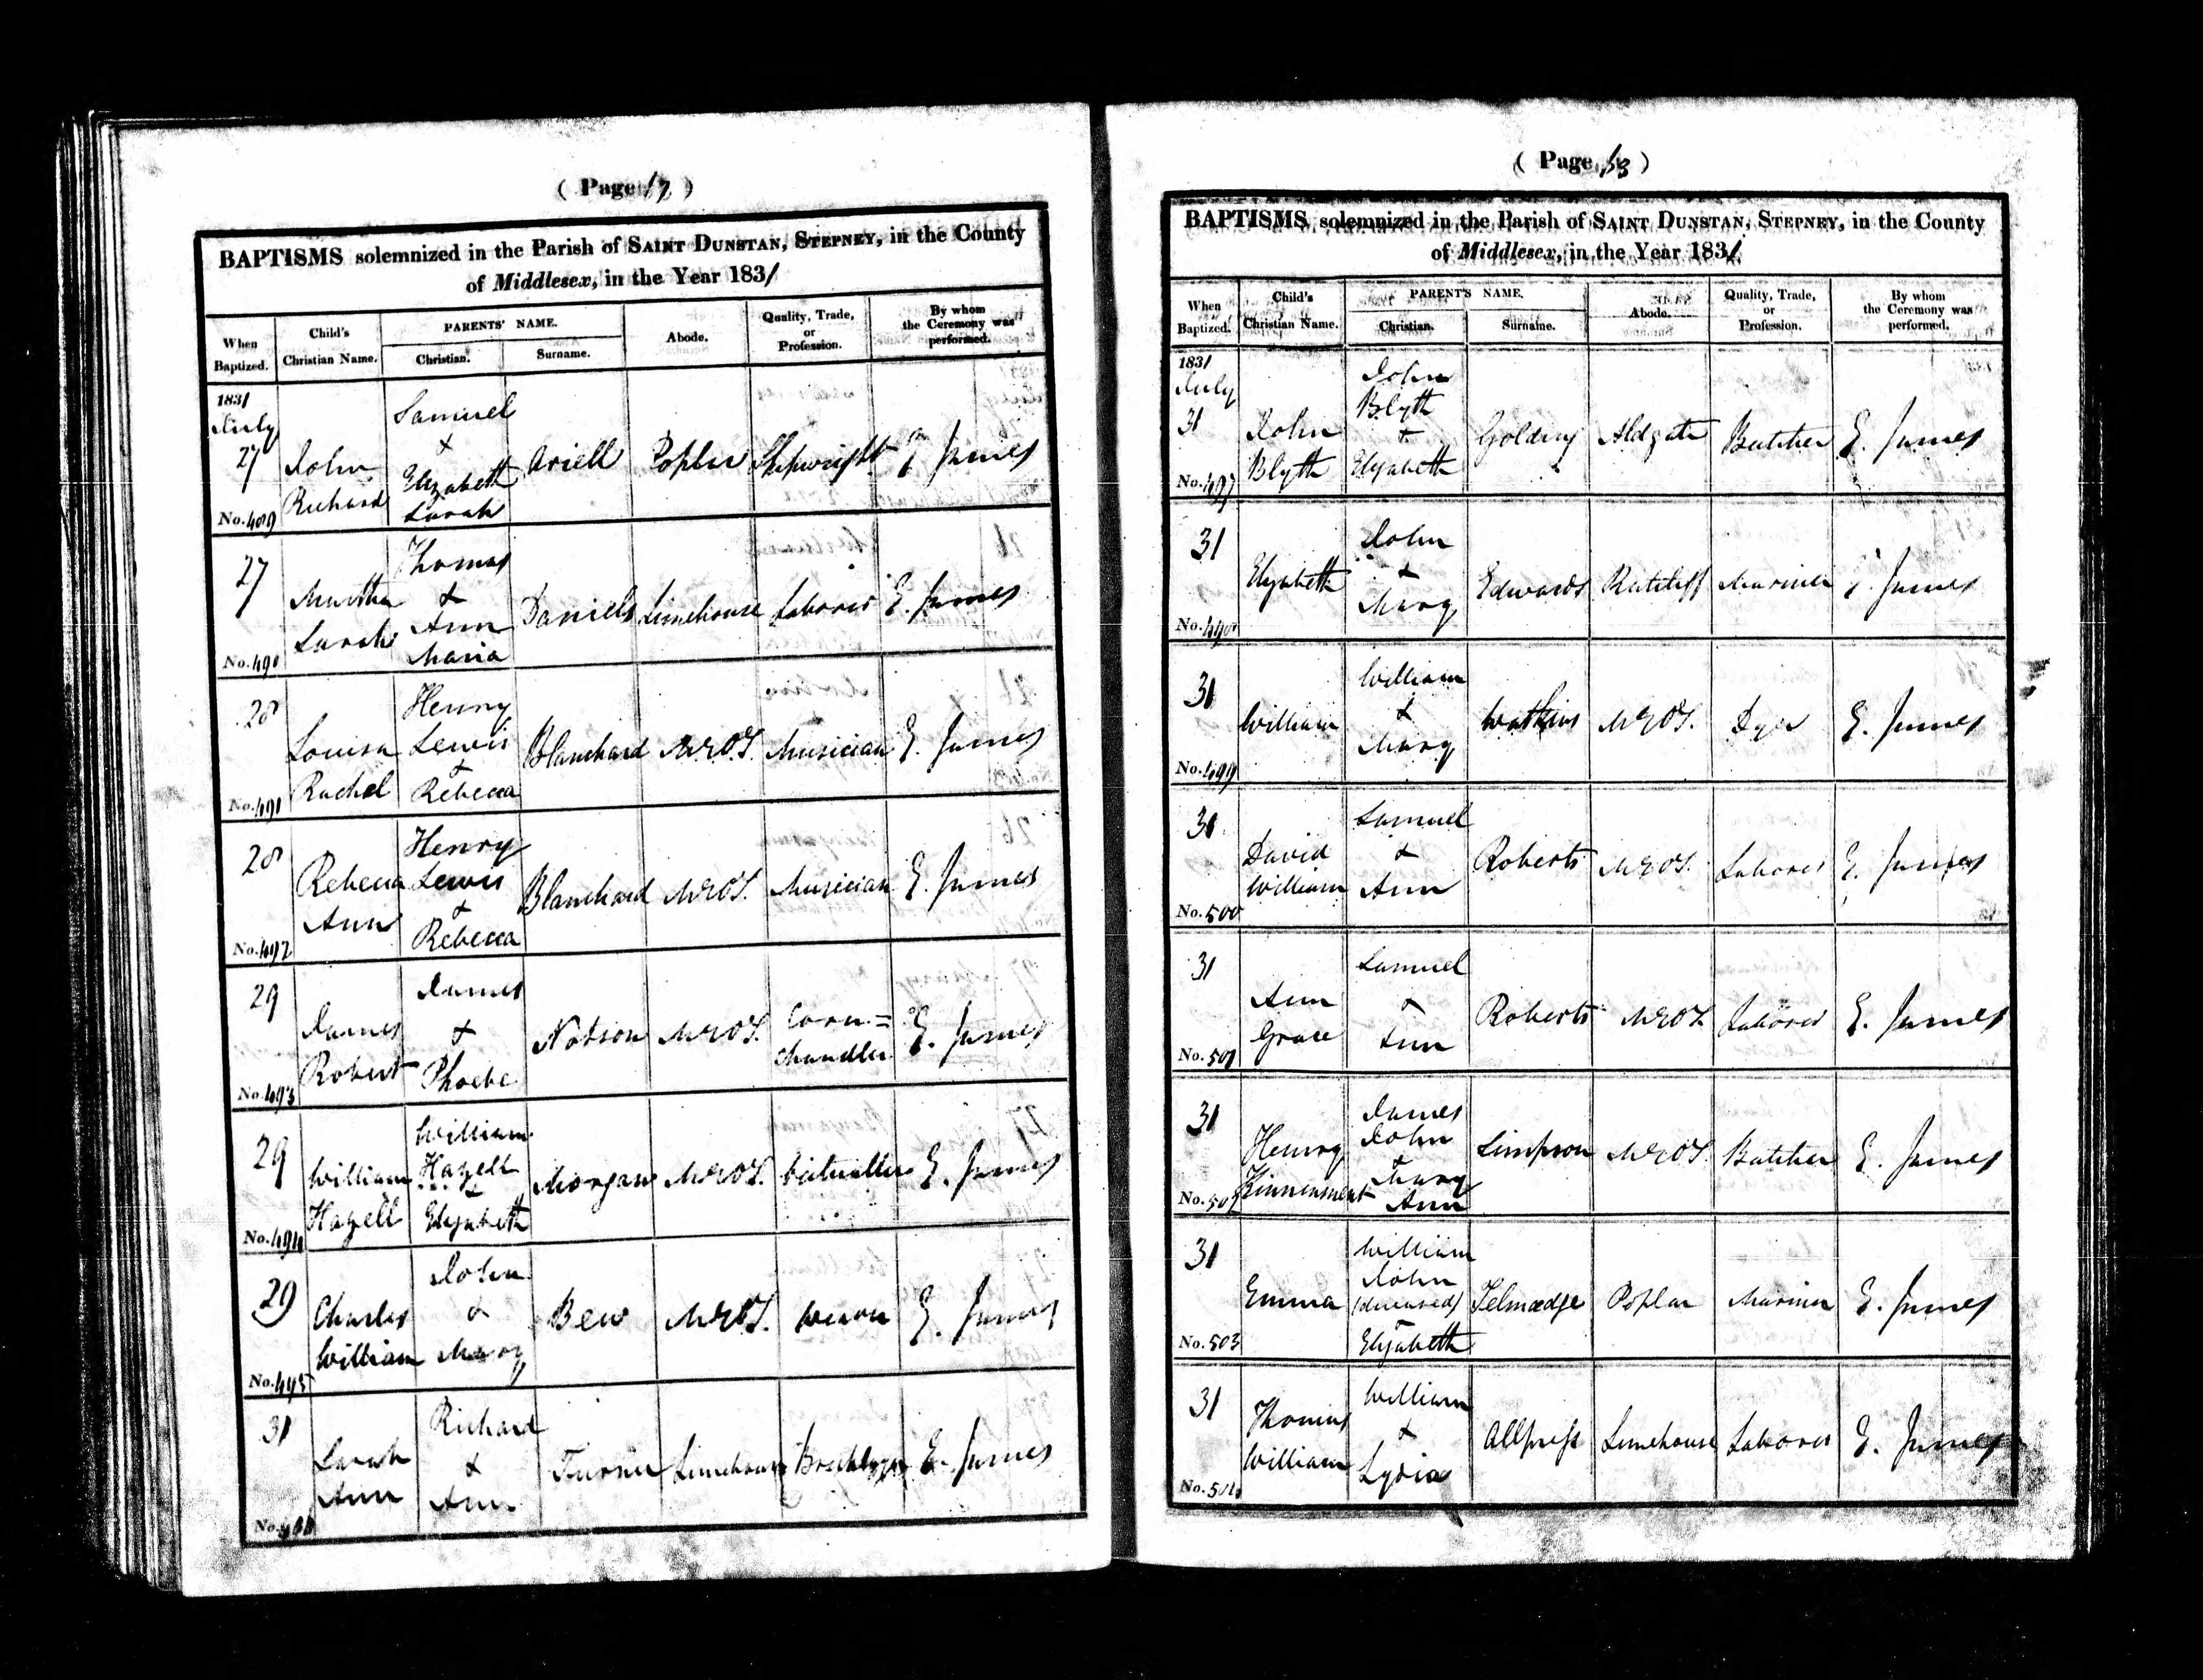 ( Page 62 )
BAPTISMS solemnized in the Parish of SAINT DUNSTAN, STEPNEY, in the County
of Middlesex, in the Year 1831
When Baptized. Child's Christian Name. PARENTS' NAME. Christian. Surname. Abode. Quality, Trade, or Profession. By whom the Ceremony was performed.
1831 July 27 No. 489 John Richard Samuel & Elizabeth Sarah Ariell Poplar Shipwright E. James
27 No. 490 Martha Sarah Thomas & Ann Maria Daniels Limehouse Laborer E. James
28 No. 491 Louisa Rachel Henry Lewis & Rebecca Blanchard M.E.O.T. Musician E. James
28 No. 492 Rebecca Ann Henry Lewis & Rebecca Blanchard M.E.O.T. Musician E. James
29 No. 493 James Robert James & Phoebe Notson M.E.O.T. Corn= Chandler E. James
29 No. 494 William Hazell William Hazell & Elizabeth Morgan M.E.O.T. Victualler E. James
29 No. 495 Charles William John & Mary Bew M.E.O.T. Weaver E. James
31 No. 496 Sarah Ann Richard & Ann Turner Limehouse E. James
( Page 63 )
BAPTISMS solemnized in the Parish of SAINT DUNSTAN, STEPNEY, in the County
of Middlesex, in the Year 1831
When Baptized. Child's Christian Name. PARENT'S NAME. Christian. Surname. Abode. Quality, Trade, or Profession. By whom the Ceremony was performed.
1831 July 31 No. 497 John Blyth John Blyth & Elizabeth Golding Aldgate Butcher E. James
31 No. 498 Elizabeth John & Mary Edwards Ratcliff Mariner E. James
31 No. 499 William William & Mary Watkins M.E.O.T. Dyer E. James
31 No. 500 David William Samuel & Ann Roberts M.E.O.T. Laborer E. James
31 No. 501 Ann Grace Samuel & Ann Roberts M.E.O.T. Laborer E. James
31 No. 502 Henry Kinnenment James John & Mary Ann Simpson M.E.O.T. Butcher E. James
31 No. 503 Emma William John (deceased) & Elizabeth Telmadge Poplar Mariner E. James
31 No. 504 Thomas William William & Lydia Allpress Limehouse Laborer E. James